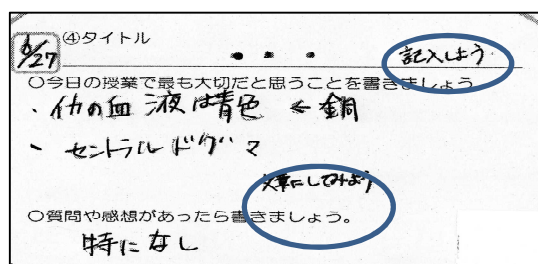 6/27 ④タイトル
・・・ 記入しよう
○今日の授業で最も大切だと思うことを書きましょう
・イカの血液は青色 ← 銅
・セントラルドグマ
文章にしてみよう
○質問や感想があったら書きましょう。
特になし